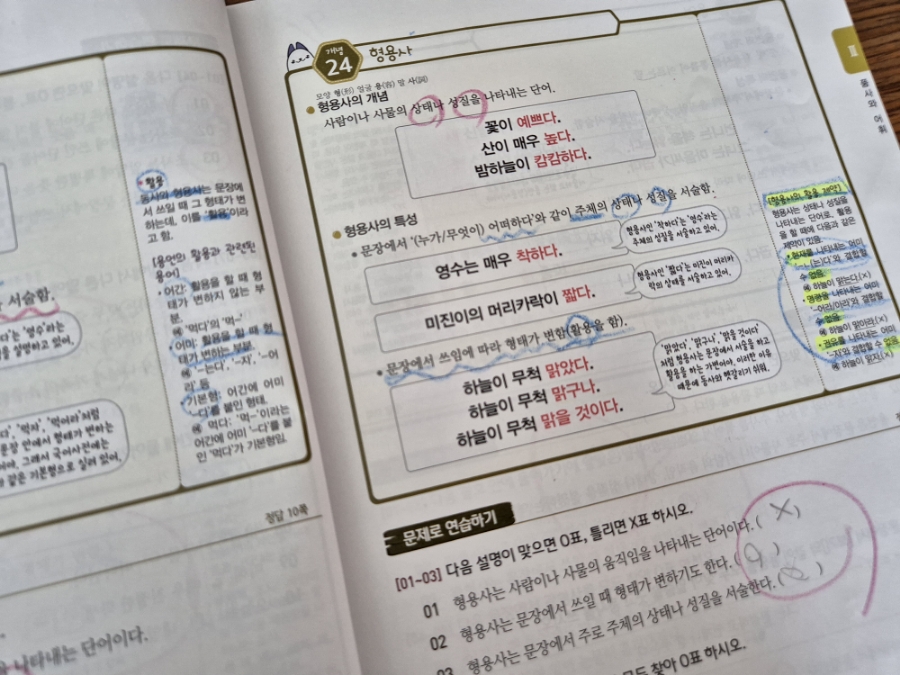 서술함.
다'는 '영수'라는
을 설명하고 있어.
다', '먹자', '먹어라'처럼
문장 안에서 형태가 변하는
어야. 그래서 국어사전에는
같은 기본형으로 실려 있어.
활용
동사와 형용사는 문장에
서 쓰일 때 그 형태가 변
하는데, 이를 '활용'이라
고 함.
[용언의 활용과 관련된
용어]
• 어간: 활용을 할 때 형
태가 변하지 않는 부
분.
예 '먹다'의 '먹-'
어미: 활용을 할 때 형
태가 변하는 부분.
예 '-는다', '-자', '-어
라' 등
기본형: 어간에 어미
'-다'를 붙인 형태.
예 먹다: '먹-'이라는
어간에 어미 '-다'를 붙
인 '먹다'가 기본형임.
정답 10쪽
나타내는 단어이다.
개념
24
형용사
모양 형(形) 얼굴 용(容) 말 사(詞)
형용사의 개념
사람이나 사물의 상태나 성질을 나타내는 단어.
꽃이 예쁘다.
산이 매우 높다.
밤하늘이 캄캄하다.
형용사의 특성
• 문장에서 '(누가/무엇이) 어떠하다'와 같이 주체의 상태나 성질을 서술함.
영수는 매우 착하다.
형용사인 '착하다'는 '영수'라는
주체의 성질을 서술하고 있어.
미진이의 머리카락이 짧다.
형용사인 '짧다'는 미진이 머리카
락의 상태를 서술하고 있어.
• 문장에서 쓰임에 따라 형태가 변함(활용을 함).
하늘이 무척 맑았다.
하늘이 무척 맑구나.
하늘이 무척 맑을 것이다.
'맑았다', '맑구나', '맑을 것이다'
처럼 형용사는 문장에서 서술을 하고
활용을 하는 가변어야. 이러한 이유
때문에 동사와 헷갈리기 쉬워.
[형용사의 활용 제약]
형용사는 상태나 성질을
나타내는 단어로, 활용
을 할 때에 다음과 같은
제약이 있음.
• 현재를 나타내는 어미
'-ㄴ(는)다'와 결합할
수 없음.
예 하늘이 맑는다.(×)
• 명령을 나타내는 어미
'-어라/아라'와 결합할
수 없음.
예 하늘이 맑아라.(×)
• 권유를 나타내는 어미
'-자'와 결합할 수 없음.
예 하늘이 맑자.(×)
Ⅱ
품사와 어휘
문제로 연습하기
[01~03] 다음 설명이 맞으면 O표, 틀리면 X표 하시오.
01 형용사는 사람이나 사물의 움직임을 나타내는 단어이다. ( X )
02 형용사는 문장에서 쓰일 때 형태가 변하기도 한다. ( O )
03 형용사는 문장에서 주로 주체의 상태나 성질을 서술한다. ( O )
모두 찾아 O표 하시오.